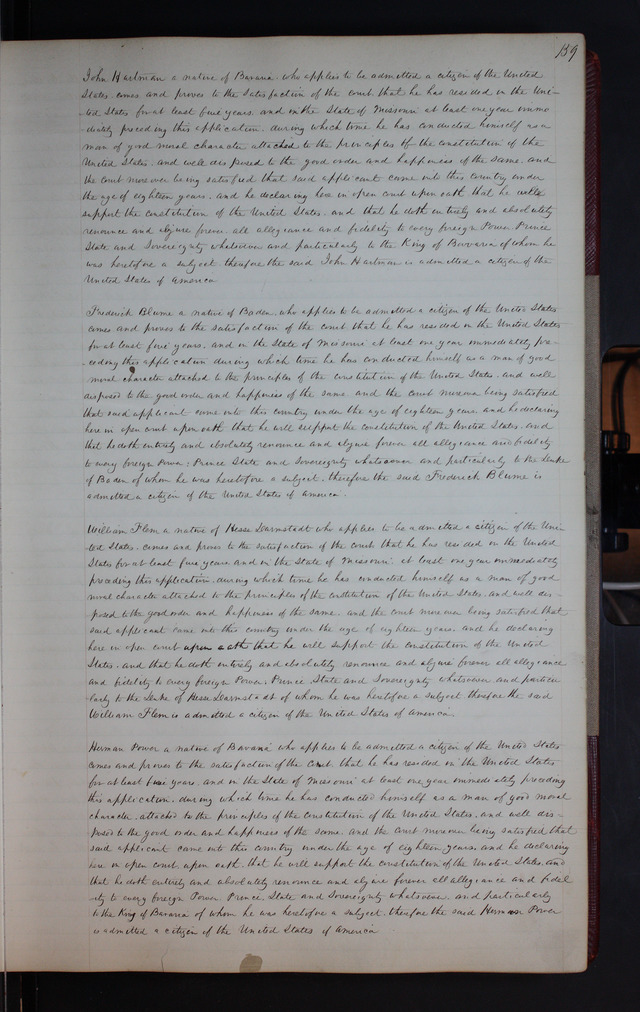 159
John Hartman a native of Bavaria who applies to be admitted a citizen of the United
States. comes and proves to the Satisfaction of the court that he has resided in the Uni-
ted States for at least five years. and in the State of Missouri at least one year imme
diately preceding this application. during which time he has conducted himself as a
man of good moral character attached to the principles of the constitution of the
United States. and well disposed to the good order and happiness of the same. and
the court moreover being satisfied that said applicant came into this country under
the age of eighteen years. and he declaring here in open court upon oath that he will
support the constitution of the United States. and that he doth entirely and absolutely
renounce and abjure forever all allegiance and fidelity to every foreign Power, Prince
State and Sovereignty whatsoever and particularly to the King of Bavaria of whom he
was heretofore a subject. therefore the said John Hartman is admitted a citizen of the
United States of America
Frederick Blume a native of Baden. who applies to be admitted a citizen of the United States
comes and proves to the satisfaction of the court that he has resided in the United States
for at least five years, and in the State of Missouri at least one year immediately pre
-ceding this application during which time he has conducted himself as a man of good
moral character attached to the principles of the constitution of the United States. and well
disposed to the good order and happiness of the same and the court moreover being satisfied
that said applicant came into this country under the age of eighteen years. and he declaring
here in open court upon oath that he will support the constitution of the United States. and
that he doth entirely and absolutely renounce and abjure forever all allegiance and fidelity
to every foreign Power, Prince State and Sovereignty whatsoever and particularly to the Duke
of Baden of whom he was heretofore a subject. therefore the said Frederick Blume is
admitted a citizen of the United States of America.
William Flem a native of Hesse Darmstadt who applies to be admitted a citizen of the Uni-
ted States. comes and proves to the satisfaction of the court that he has resided in the United
States for at least five years. and in the State of Missouri. at least one year immediately
preceding this application. during which time he has conducted himself as a man of good
moral character attached to the principles of the constitution of the United States. and well dis-
posed to the good order and happiness of the same. and the court moreover being satisfied that
said applicant came into this country under the age of eighteen years. and he declaring
here in open court upon oath that he will support the constitution of the United
States. and that he doth entirely and absolutely renounce and abjure forever all allegiance
and fidelity to every foreign Power, Prince, State and Sovereignty whatsoever. and particu
larly to the Duke of Hesse Darmstadt of whom he was heretofore a subject. therefore the said
William Flem is admitted a citizen of the United States of America.
Herman Power a native of Bavaria who applies to be admitted a citizen of the United States
comes and proves to the satisfaction of the court. that he has resided in the United States
for at least five years. and in the State of Missouri at least one year immediately preceding
this application. during which time he has conducted himself as a man of good moral
character. attached to the principles of the Constitution of the United States. and well dis-
posed to the good order and happiness of the same. and the court moreover being satisfied that
said applicant came into this country under the age of eighteen years. and he declaring
here in open court upon oath. that he will support the constitution of the United States. and
that he doth entirely and absolutely renounce and abjure forever all allegiance and fidel
ity to every foreign Power Prince, State and Sovereignty whatsoever. and particularly
to the King of Bavaria of whom he was heretofore a subject. therefore the said Herman Power
is admitted a citizen of the United States of America